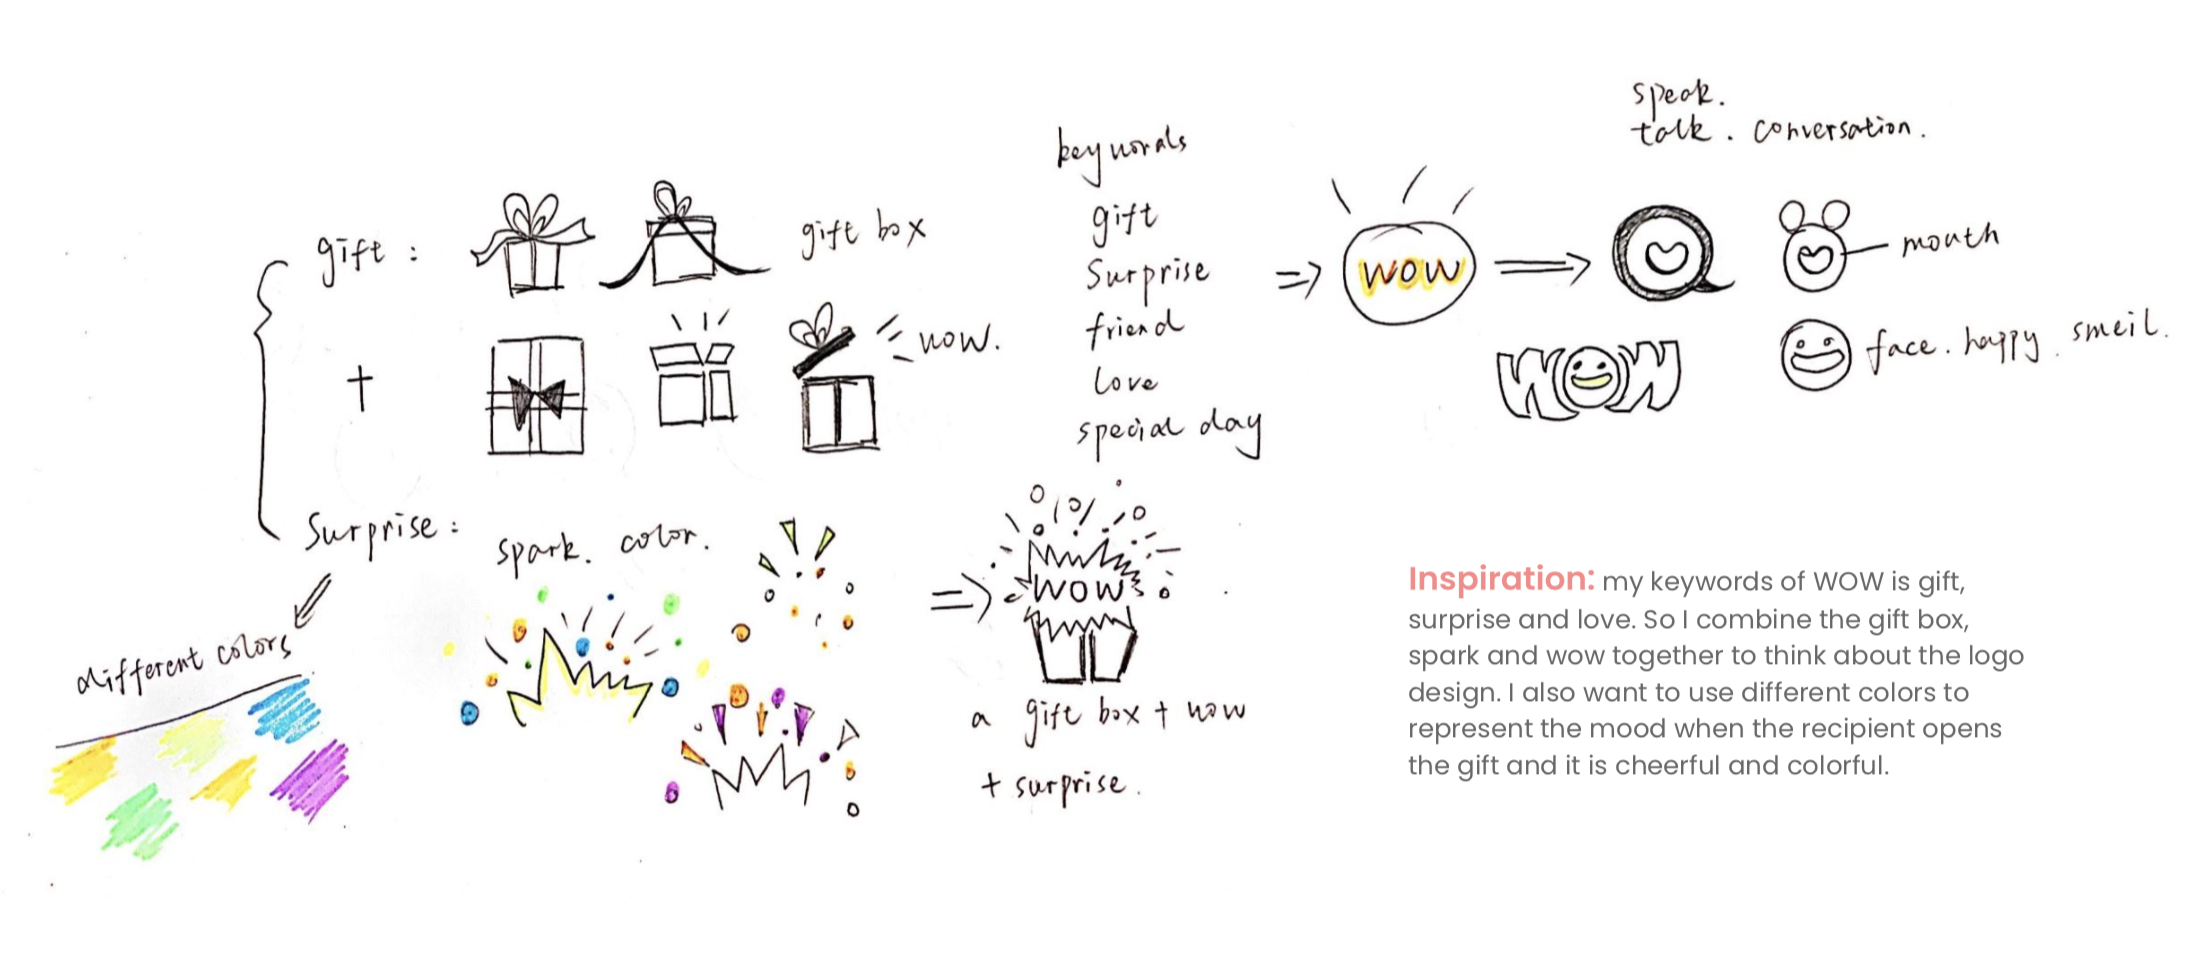 gift :
gift box
wow.
+
Surprise :
spark. color.
different colors
keywords
gift
Surprise
friend
Love
special day
=>
wow
speak.
talk. conversation.
mouth
face. happy. smeil.
WOW
=>
WOW
a gift box + wow
+ surprise.
Inspiration: my keywords of WOW is gift,
surprise and love. So I combine the gift box,
spark and wow together to think about the logo
design. I also want to use different colors to
represent the mood when the recipient opens
the gift and it is cheerful and colorful.